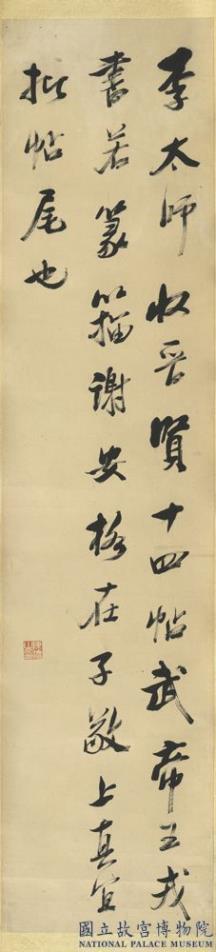 李太師收晉賢十四帖武帝王戎
書若篆籀謝安格在子敬上真宜
批帖尾也
國立故宮博物院
NATIONAL PALACE MUSEUM